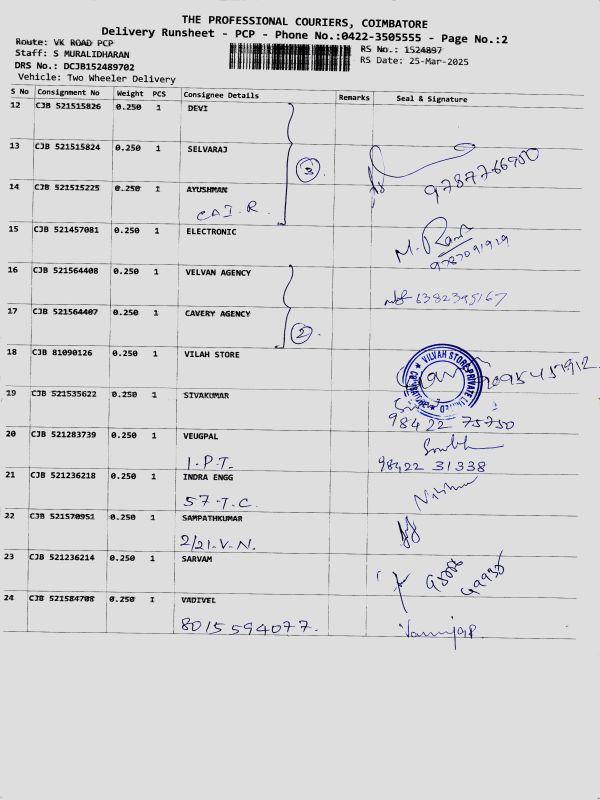 THE PROFESSIONAL COURIERS, COIMBATORE
Delivery Runsheet - PCP - Phone No.:0422-3505555 - Page No.:2
Route: VK ROAD PCP
Staff: S MURALIDHARAN
RS No.: 1524897
DRS No.: DCJB152489702
RS Date: 25-Mar-2025
Vehicle: Two Wheeler Delivery
S No Consignment No Weight PCS Consignee Details Remarks Seal & Signature
12 CJB 521515826 0.250 1 DEVI
13 CJB 521515824 0.250 1 SELVARAJ
3
9787766950
14 CJB 521515225 0.250 1 AYUSHMAN
C A I . R .
15 CJB 521457081 0.250 1 ELECTRONIC
M. Rani
9787091929
16 CJB 521564408 0.250 1 VELVAN AGENCY
6382395167
17 CJB 521564407 0.250 1 CAVERY AGENCY
2
18 CJB 81090126 0.250 1 VILAH STORE
VILVAH STORE PRIVATE LIMITED
19 CJB 521535622 0.250 1 SIVAKUMAR
98422 75750
20 CJB 521283739 0.250 1 VEUGPAL
1.P.T.
98422 31338
21 CJB 521236218 0.250 1 INDRA ENGG
57-T.C.
22 CJB 521570951 0.250 1 SAMPATHKUMAR
2/21-V-N.
23 CJB 521236214 0.250 1 SARVAM
24 CJB 521584708 0.250 1 VADIVEL
8015594077.